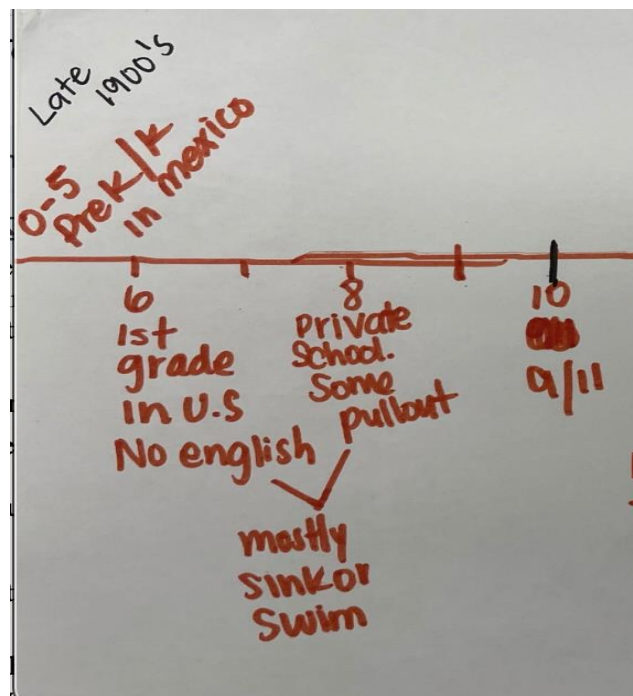 Late
1900's
0-5
PreK/K
in mexico
6
1st
grade
in U.S
No english
8
Private
School.
Some
pullout
mostly
sink or
swim
10
9/11